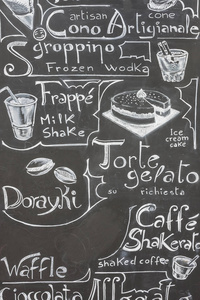 artisan cone
Cono Artigianale
Sgroppino
Frozen Wodka
Frappé
Milk
Shake
Ice
cream
cake
Torte
gelato
su richiesta
Dorayki
Caffé
Shakerato
shaked coffee
Waffle
Cioccolato